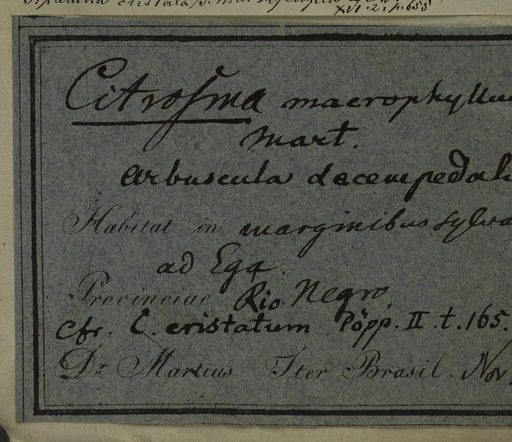 cristata
XVI. 2. p. 655
Citrosma macrophyllu
Mart.
Arbuscula decempedali
Habitat in marginibus sylva
ad Ega.
Provinciae Rio Negro.
Cfr. C. cristatum Pöpp. II. t. 165.
Dr. Martius Iter Brasil. Nov